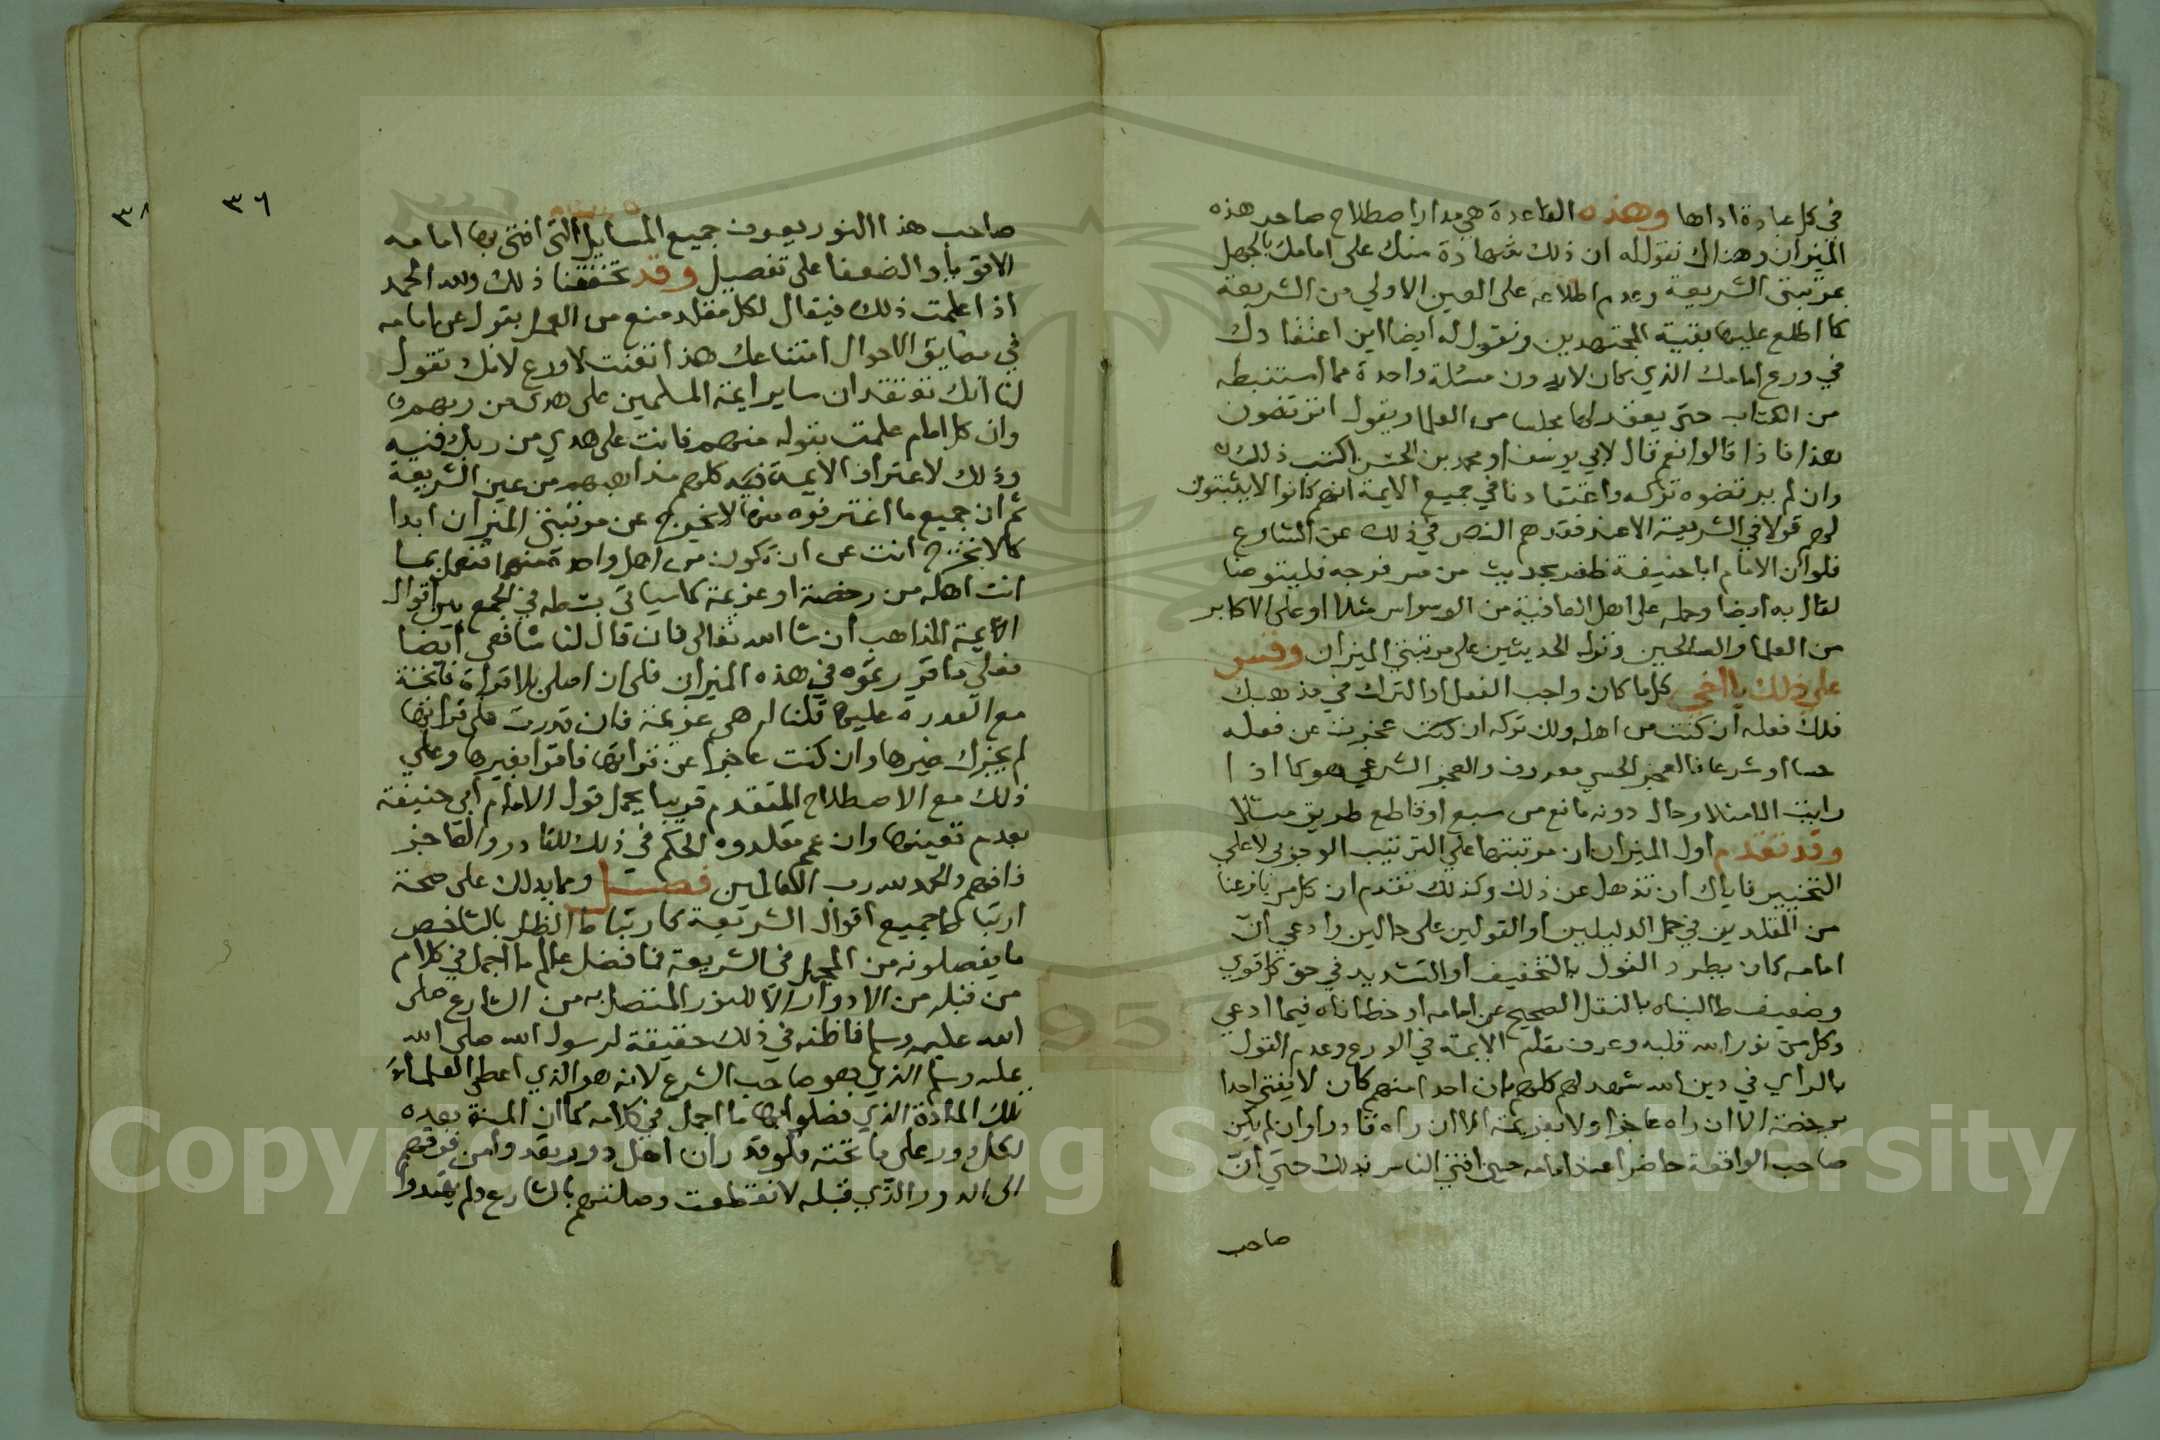 في كل عبادة اداها وهذه القاعدة هي مدار اصطلاح صاحب هذه
الميزان وهناك نقول له ان ذلك شهادة منك على امامك بالجهل
بمرتبتي الشريعة وعدم اطلاعه على العين الاولي من الشريعة
كما اطلع عليها بقية المجتهدين ونقول له ايضا اين اعتقادك
في ورع امامك الذي كان لا يدون مسئلة واحدة مما استنبطه
من الكتاب حتى يعقد لها مجلسا من العلما ويقول اترتضون
هذا فاذا قالوا نعم قال لابي يوسف او محمد بن الحسن اكتب ذلك
وان لم يرتضوه تركه واعتقادنا في جميع الايمة انهم كانوا لا يثبتون
لهم قولا في الشريعة الا عند فقدهم النص في ذلك عن الشارع
فلو ان الامام ابا حنيفة ظفر بحديث من مس فرجه فليتوضا
لقال به ايضا وحمله على اهل العافية من الوسواس مثلا او على الاكابر
من العلما والصالحين ونزل الحديثين على مرتبتي الميزان وقس
على ذلك يا اخي كل ما كان واجب الفعل او الترك في مذهبك
فلك فعله ان كنت من اهله ولك تركه ان كنت عجزت عن فعله
حسا او شرعا فالعجز الحسي معروف والعجز الشرعي هو كما اذا
رايت الما مثلا وحال دونه مانع من سبع او قاطع طريق مثلا
وقد تقدم اول الميزان ان مرتبتيها على الترتيب الوجوبي لا على
التخيير فاياك ان تذهل عن ذلك وكذلك تقدم ان كل من نازعنا
من المقلدين في حمل الدليلين او القولين على حالين وادعى ان
امامه كان يطرد القول بالتخفيف او التشديد في حق كل قوي
وضعيف طالبناه بالنقل الصحيح عن امامه او خطاناه فيما ادعي
وكل من نور الله قلبه وعرف مقام الايمة في الورع وعدم القول
بالراي في دين الله شهد لهم كلهم بان احدا منهم كان لا يفتي احدا
برخصة الا ان راه عاجزا ولا بعزيمة الا ان راه قادرا وان لم يكن
صاحب الواقعة حاضرا عند امامه حين افتى الناس بذلك حتي ان
صاحب
٣٦
٣٨
صاحب هذا النور يعرف جميع المسايل التي افتى بها امامه
الاقويا والضعفا على تفصيل وقد تحققنا ذلك ولله الحمد
اذا علمت ذلك فيقال لكل مقلد منع من العمل بقول غير امامه
في مضايق الاحوال امتناعك هذا تعنت لا ورع لانك تقول
لنا انك تعتقد ان ساير ايمة المسلمين على هدى من ربهم
وان كل امام عملت بقوله منهم فانت على هدي من ربك فيه
وذلك لاغتراف الايمة كلهم مذاهبهم من عين الشريعة
ثم ان جميع ما اغترفوه منها لا يخرج عن مرتبتي الميزان ابدا
كما لا تخرج انت عن ان تكون من اهل واحدة منهما فتعمل بما
انت اهله من رخصة او عزيمة كما سياتي بسطه في الجمع بين اقوال
الايمة المذاهب ان شا الله تعالى فان قال لنا شافعي ايضا
فعلى ما قررتموه في هذه الميزان فلي ان اصلي بلا قراة فاتحة
مع القدرة عليها قلنا له هي عزيمة فان قدرت على قراتها
لم يجزك غيرها وان كنت عاجزا عن قراتها فاقرا بغيرها وعلي
ذلك مع الاصطلاح المتقدم قريبا يحمل قول الامام ابي حنيفة
بعدم تعيينها وان عمم مقلدوه الحكم في ذلك للقادر والعاجز
فافهم والحمد لله رب العالمين فصل ومما يدلك على صحة
ارتباط جميع اقوال الشريعة كارتباط الظل بالشاخص
ما يفصلونه من المجمل في الشريعة فما فصل عالم ما اجمل في كلام
من قبله من الادوار الا للنور المتصل به من الشارع صلى
الله عليه وسلم فالمنة في ذلك حقيقة لرسول الله صلى الله
عليه وسلم الذي هو صاحب الشرع لانه هو الذي اعطى العلماء
تلك المادة الذي فصلوا بها ما اجمل في كلامه كما ان المنة بعده
لكل دور على ما تحته فلو قدر ان اهل دور تعدوا من فوقهم
الى الدور الذي قبله لانقطعت وصلتهم بالشارع ولم يهتدوا
Copyright © King Saud University